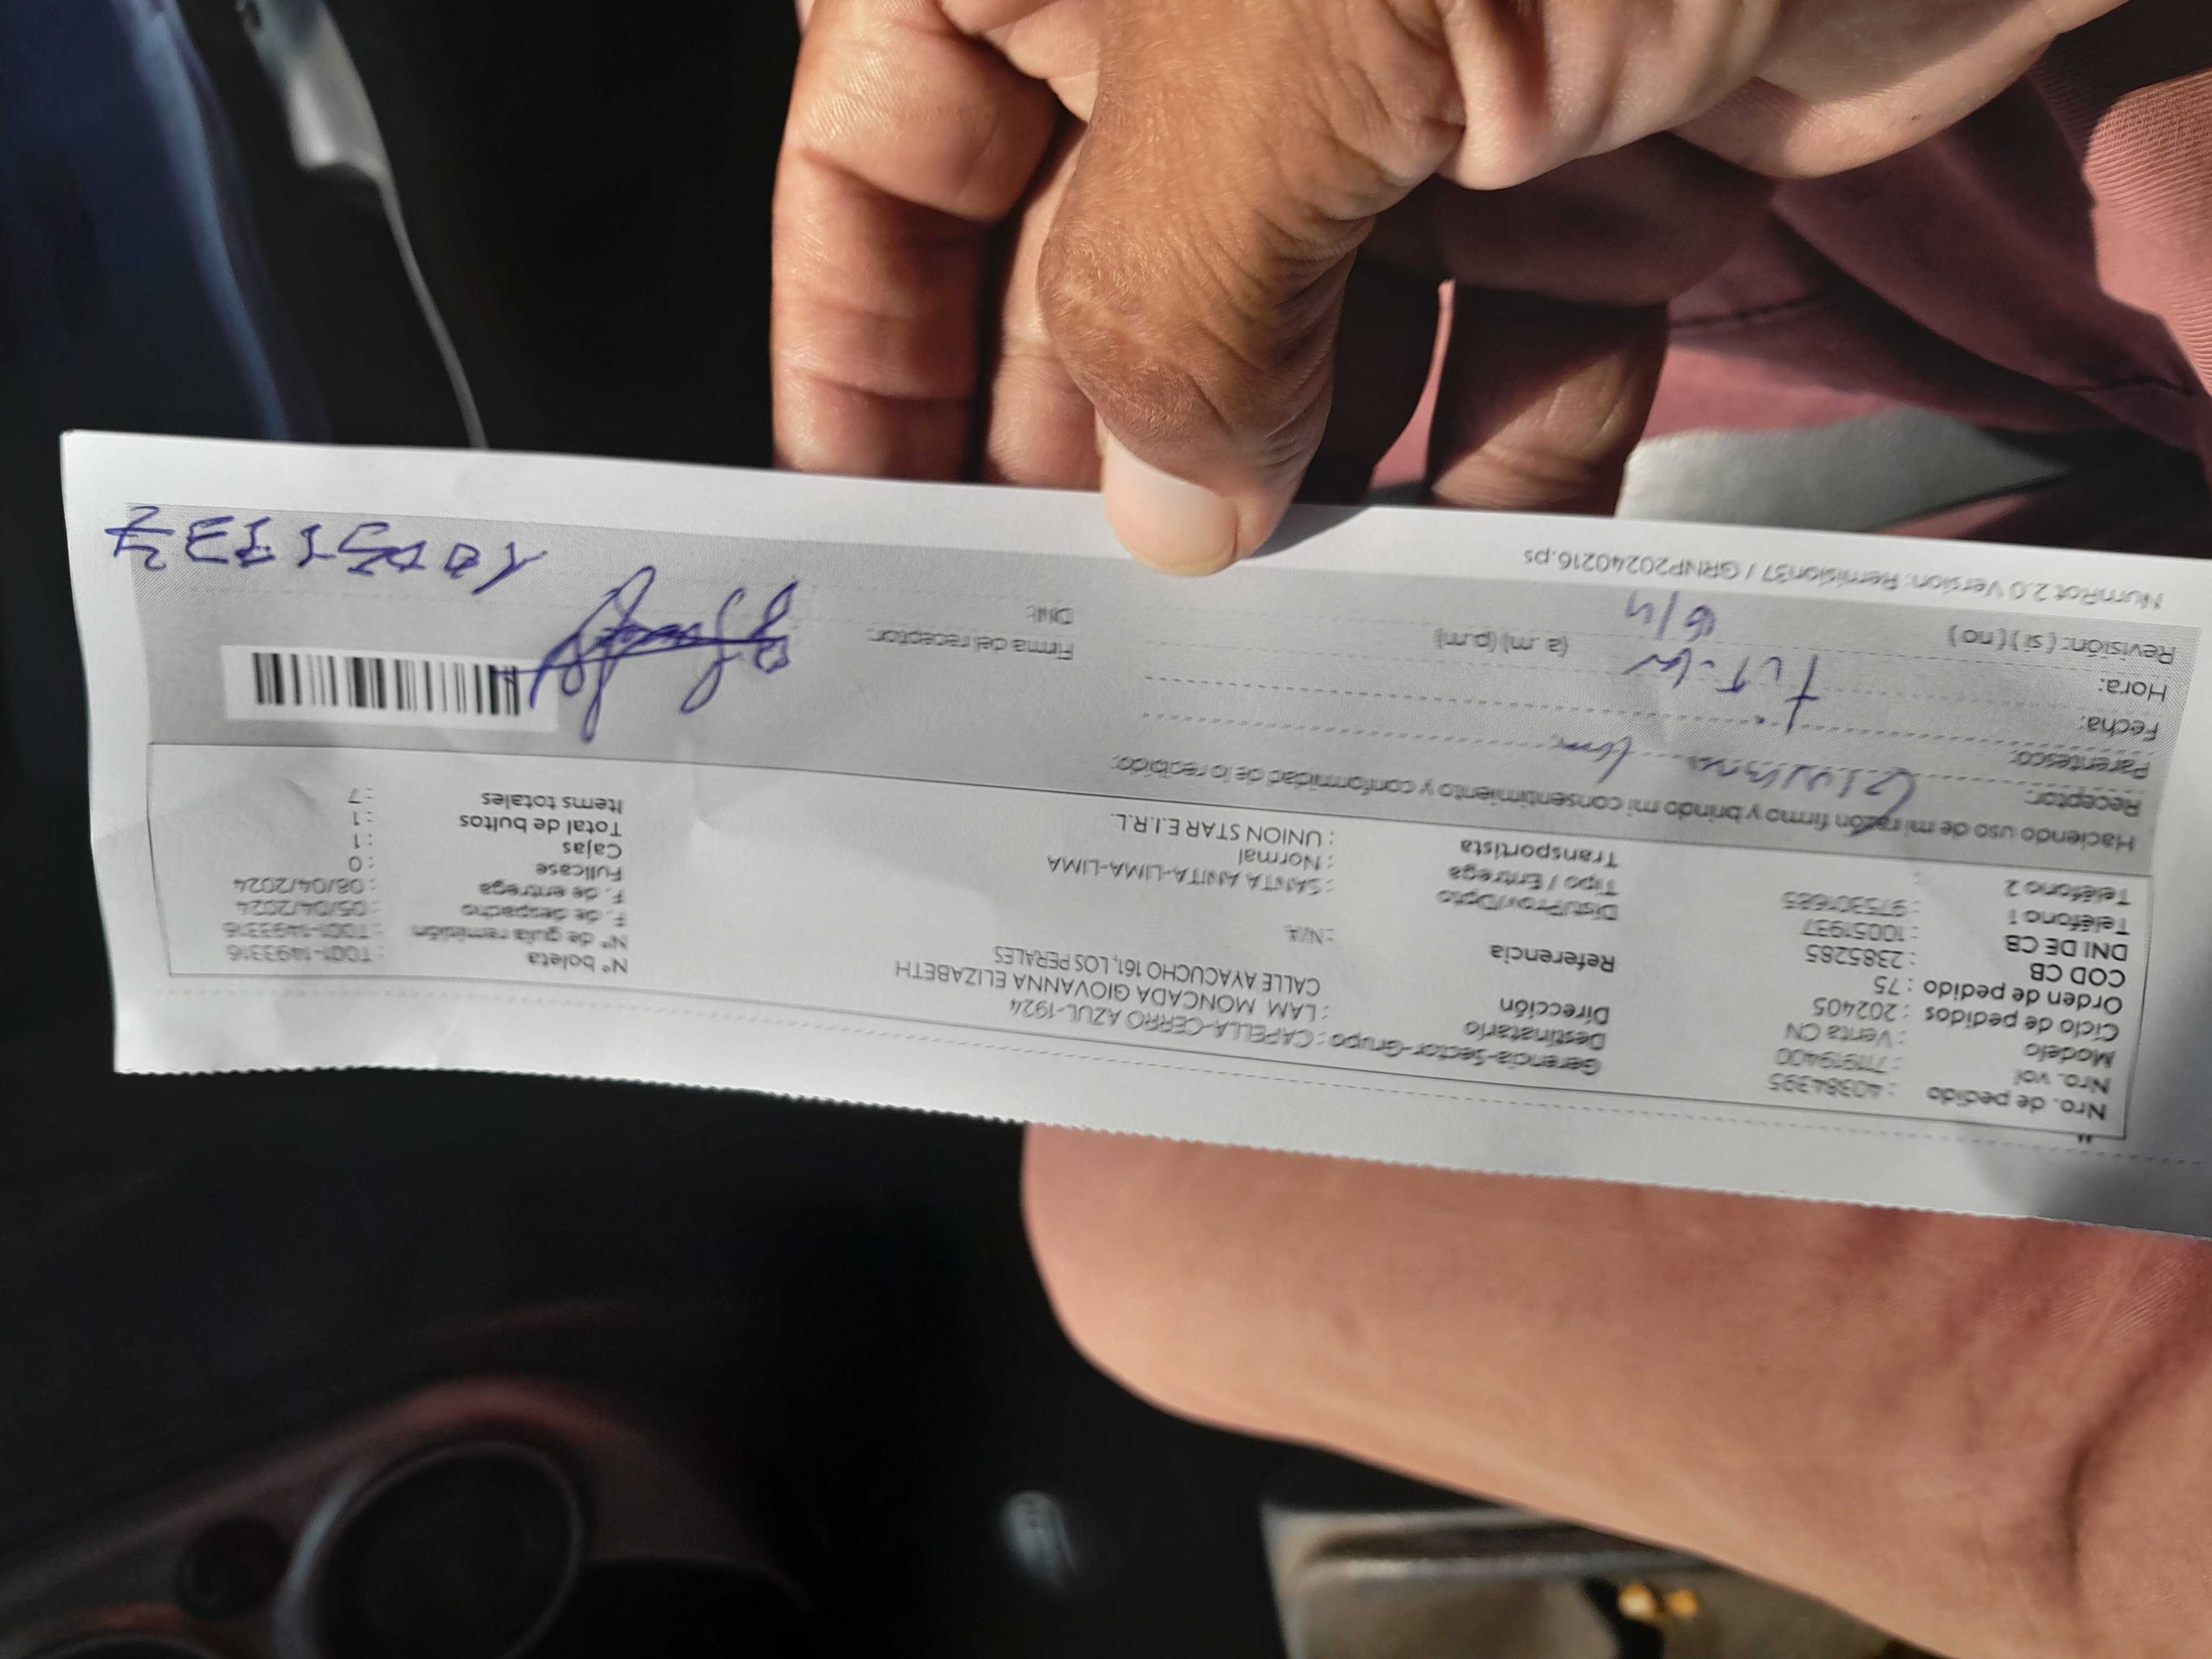 Nro. de pedido : 40384395
Nro. vol : 711919400
Modelo : Venta CN
Ciclo de pedidos : 202405
Orden de pedido : 75
COD CB : 2385285
DNI DE CB : 10051937
Teléfono 1 : 975301685
Teléfono 2 :
Gerencia-Sector-Grupo : CAPELLA-CERRO AZUL-1924
Destinatario : LAM MONCADA GIOVANNA ELIZABETH
Dirección CALLE AYACUCHO 161, LOS PERALES
Referencia : N/A
Dist/Prov/Dpto : SANTA ANITA-LIMA-LIMA
Tipo / Entrega : Normal
Transportista : UNION STAR E.I.R.L.
N° boleta : T001-1493316
N° de guía remisión : T001-1493316
F. de despacho : 05/04/2024
F. de entrega : 08/04/2024
Fullcase : 0
Cajas : 1
Total de bultos : 1
Items totales : 7
Haciendo uso de mi razón firmo y brindo mi consentimiento y conformidad de lo recibido:
Receptor: Giovanna Lam
Parentesco:
Fecha:
Hora: (a .m) (p.m)
Revisión: ( si ) ( no ) 6/4
Firma del receptor:
DNI: 10051937
NumRot 2.0 Version: Remision37 / GRNP20240216.ps